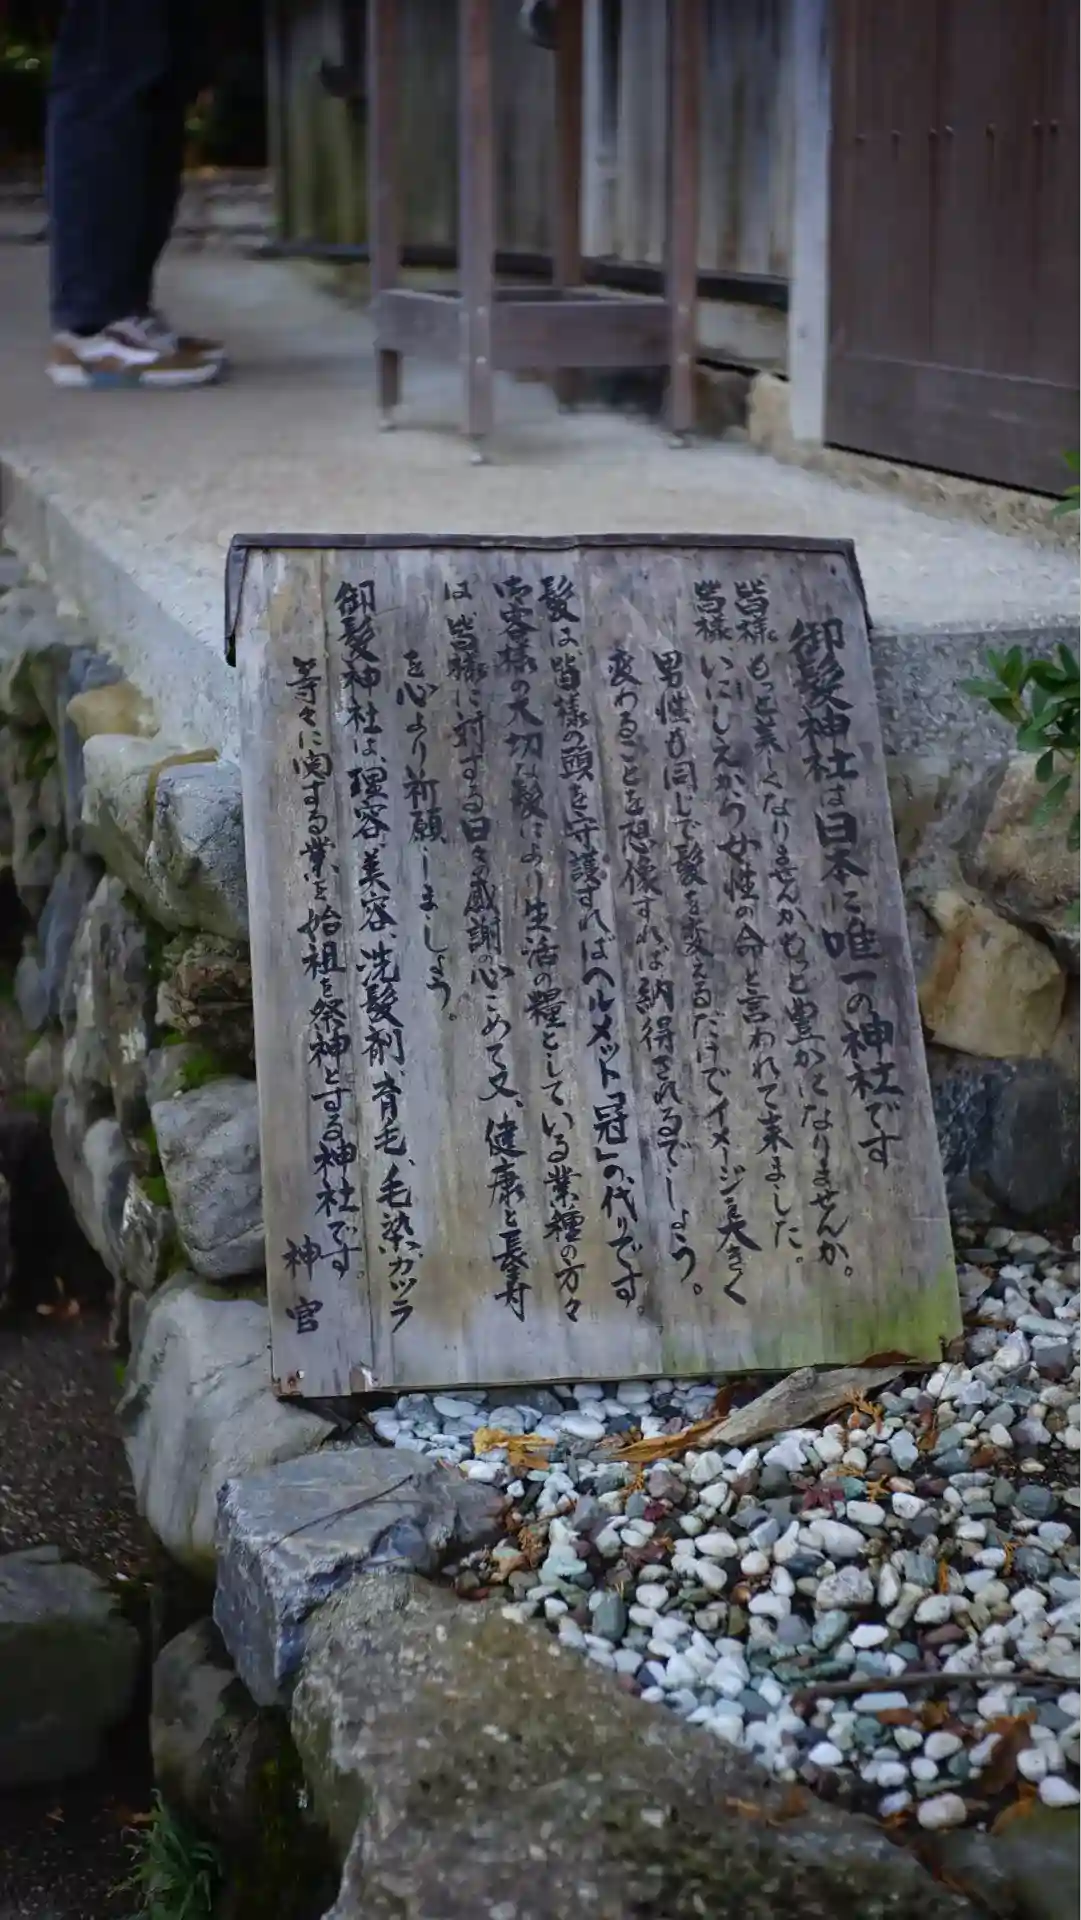 御髪神社は日本に唯一の神社です
皆様もっと美しくなりませんかもっと豊かになりませんか。
皆様いにしえから女性の命と言われて来ました。
男性も同じで髪を変えるだけでイメージ大きく
変わることを想像すれば納得されるでしょう。
髪は、皆様の頭を守護すればヘルメット「冠」の代りです。
お客様の大切な髪により生活の糧としている業種の方々
は、皆様に対する日々の感謝の心こめて又、健康と長寿
を心より祈願しましょう。
御髪神社は、理容、美容、洗髪剤、育毛、毛染、カツラ
等々に関する業を始祖を祭神とする神社です。
神官